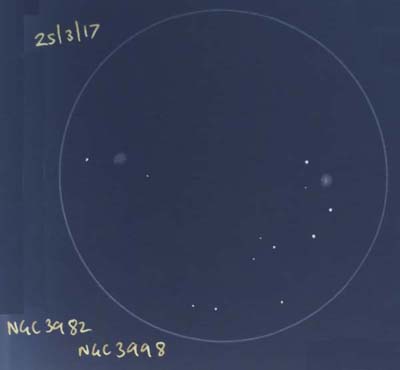 25/3/17
NGC3982
NGC3998